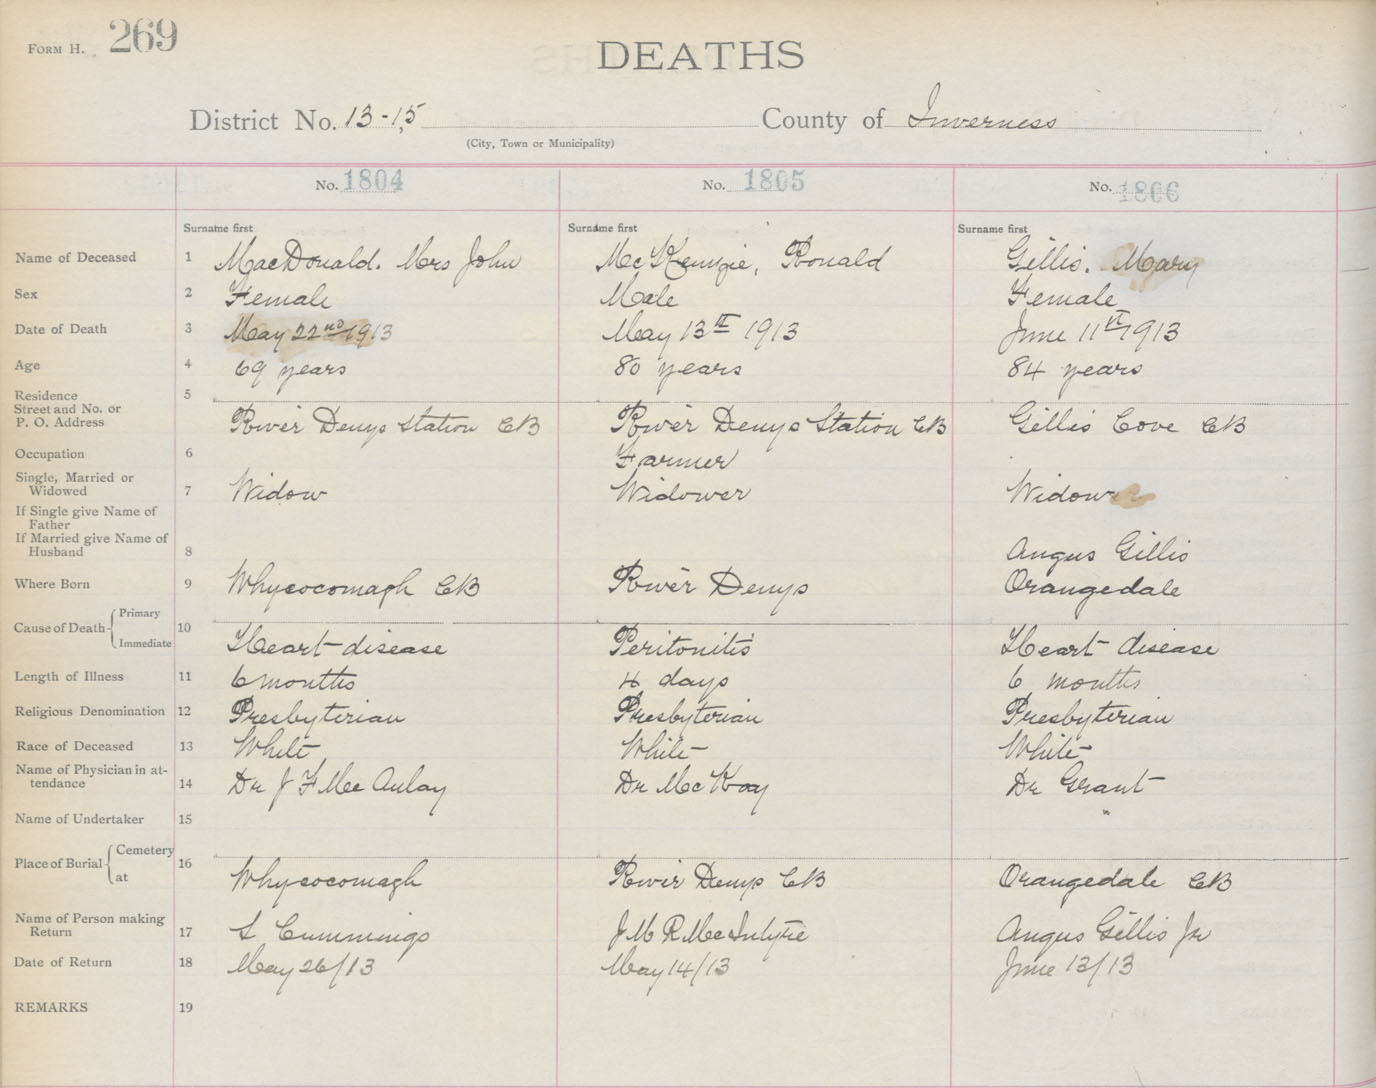 FORM H. 269
DEATHS
District No. 13-15 County of Inverness
(City, Town or Municipality)
No. 1804 No. 1805 No. 1806
Surname first Surname first Surname first
Name of Deceased 1 MacDonald. Mrs John McKenzie, Ronald Gillis. Mary
Sex 2 Female Male Female
Date of Death 3 May 22nd 1913 May 13th 1913 June 11th 1913
Age 4 69 years 80 years 84 years
Residence 5
Street and No. or
P. O. Address River Denys Station CB River Denys Station CB Gillis Cove CB
Occupation 6 Farmer
Single, Married or
Widowed 7 Widow Widower Widow
If Single give Name of
Father
If Married give Name of
Husband 8 Angus Gillis
Where Born 9 Whycocomagh CB River Denys Orangedale
Cause of Death { Primary
10
Immediate Heart disease Peritonitis Heart disease
Length of Illness 11 6 months 4 days 6 months
Religious Denomination 12 Presbyterian Presbyterian Presbyterian
Race of Deceased 13 White White White
Name of Physician in at-
tendance 14 Dr J F McAulay Dr McKay Dr Grant
Name of Undertaker 15 "
Place of Burial { Cemetery 16
at Whycocomagh River Denys CB Orangedale CB
Name of Person making
Return 17 S Cummings J M R MacIntyre Angus Gillis Jr
Date of Return 18 May 26/13 May 14/13 June 13/13
REMARKS 19